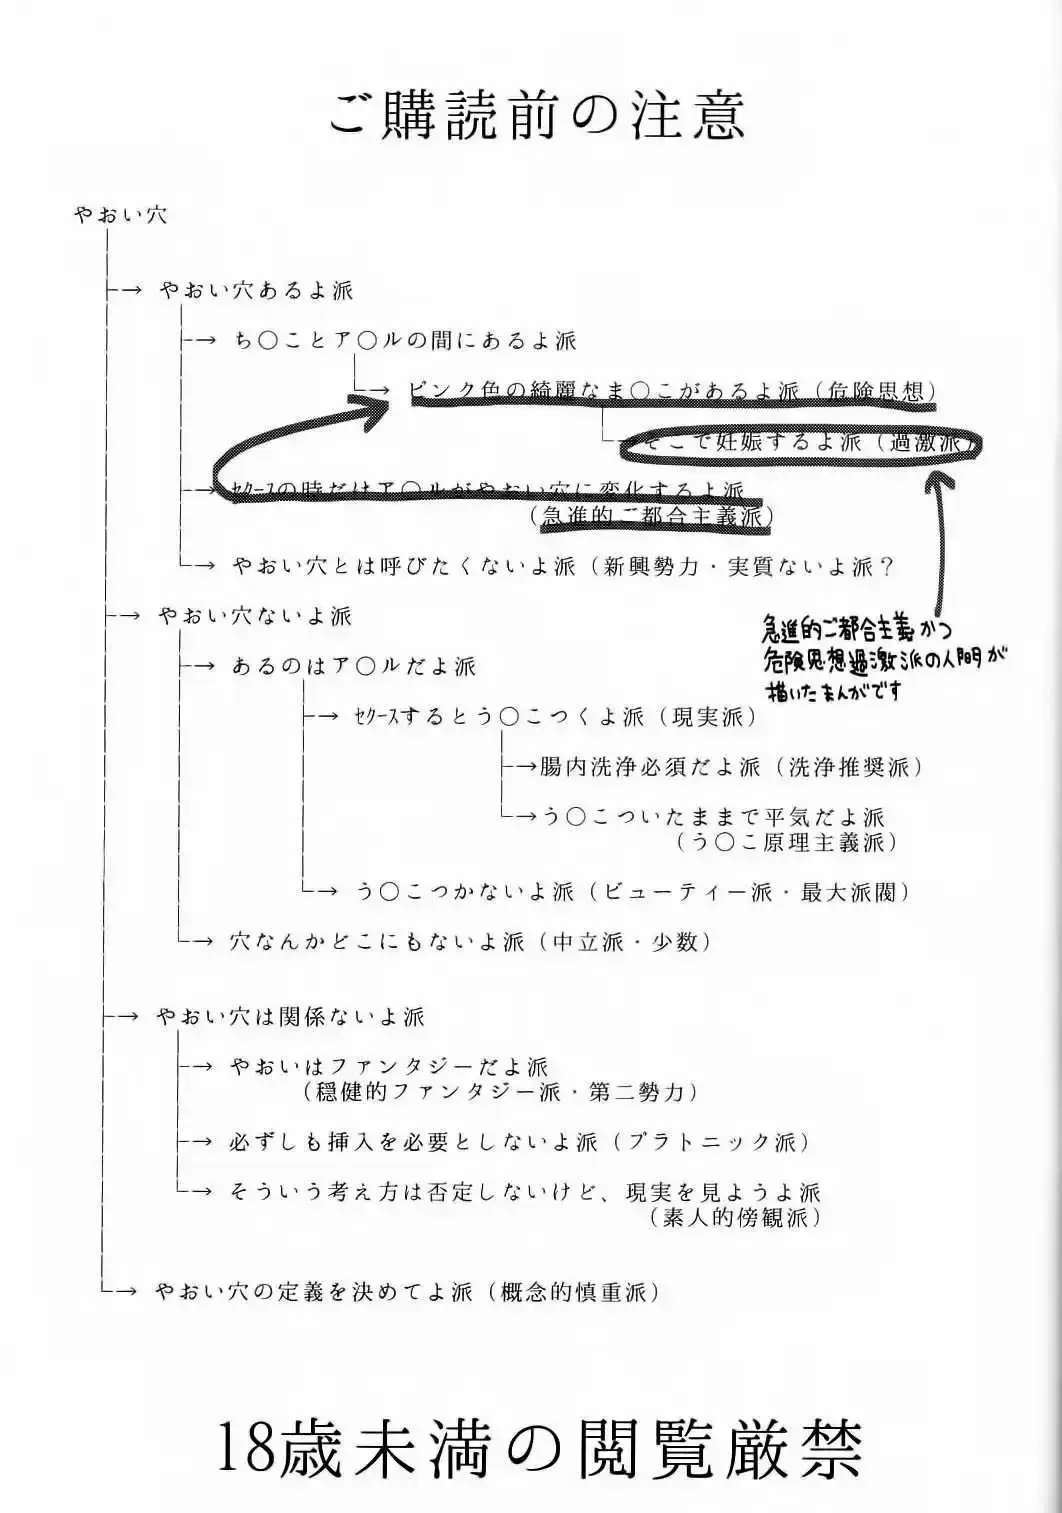 ご購読前の注意
やおい穴
→ やおい穴あるよ派
→ ち○ことア○ルの間にあるよ派
→ ピンク色の綺麗なま○こがあるよ派（危険思想）
→ そこで妊娠するよ派（過激派）
→ ｾｸｰｽの時だけア○ルがやおい穴に変化するよ派
（急進的ご都合主義派）
→ やおい穴とは呼びたくないよ派（新興勢力・実質ないよ派？
→ やおい穴ないよ派
急進的ご都合主義かつ
危険思想過激派の人間が
描いたまんがです
→ あるのはア○ルだよ派
→ ｾｸｰｽするとう○こつくよ派（現実派）
→腸内洗浄必須だよ派（洗浄推奨派）
→う○こついたままで平気だよ派
（う○こ原理主義派）
→ う○こつかないよ派（ビューティー派・最大派閥）
→ 穴なんかどこにもないよ派（中立派・少数）
→ やおい穴は関係ないよ派
→ やおいはファンタジーだよ派
（穏健的ファンタジー派・第二勢力）
→ 必ずしも挿入を必要としないよ派（プラトニック派）
→ そういう考え方は否定しないけど、現実を見ようよ派
（素人的傍観派）
→ やおい穴の定義を決めてよ派（概念的慎重派）
18歳未満の閲覧厳禁